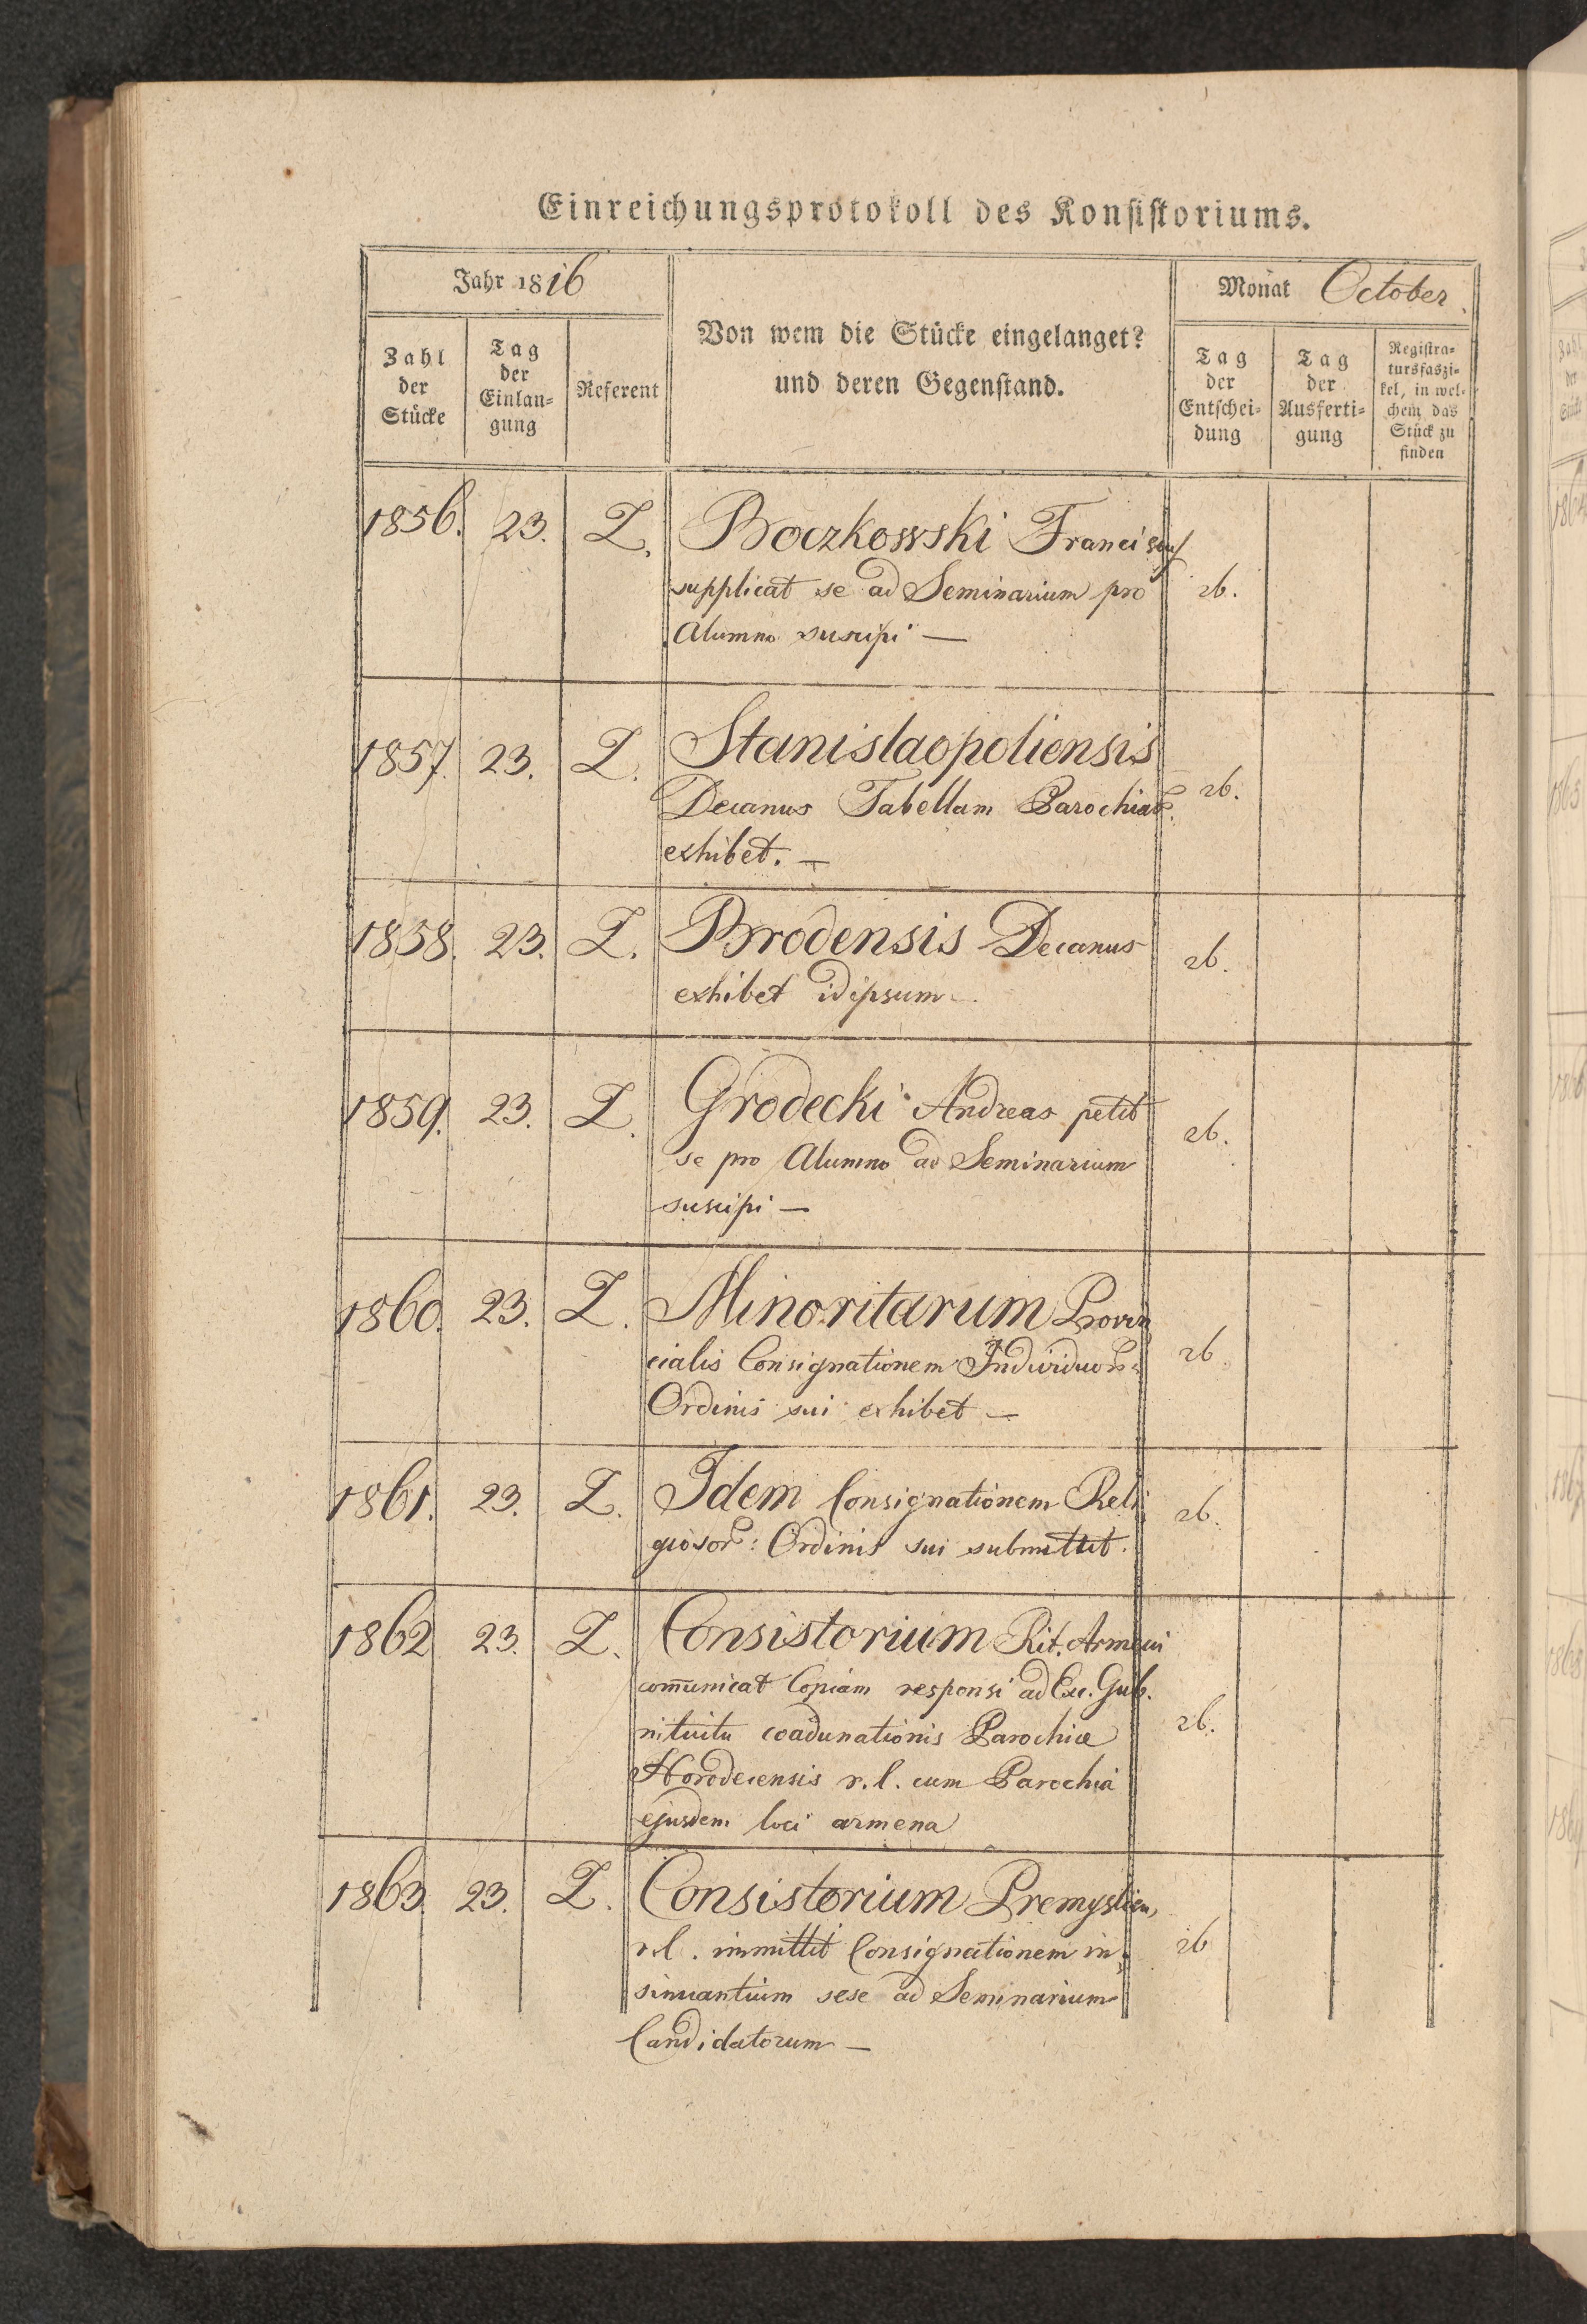 Einreichungsprotokoll des Konsistoriums.
Jahr 1816
Monat October
Zahl der Stücke
Tag der Einlan-gung
Referent
Von wem die Stücke eingelanget?
und deren Gegenstand.
Tag der Entschei-dung
Tag der Ausferti-gung
Registra-tursfaszi-kel, in wel-chem das Stück zu finden
1856. 23. L. Boczkowski Franciscus
supplicat se ad Seminarium pro 26.
Alumno suscipi —
1857. 23. L. Stanislaopoliensis
Decanus Tabellam Parochiar. 26.
exhibet. —
1858. 23. L. Brodensis Decanus 26.
exhibet idipsum
1859. 23. L. Grodecki Andreas petit 26.
se pro Alumno ad Seminarium
suscipi —
1860. 23. L. Minoritarum Provin
cialis Consignationem Individuor: 26.
Ordinis sui exhibet —
1861. 23. L. Idem Consignationem Reli 26.
giosor: Ordinis sui submittit.
1862 23. L. Consistorium Rit. Armeni
com̄unicat Copiam responsi ad Exc. Gub.
intuitu coadunationis Parochiæ 26.
Horodecensis r. l. cum Parochia
ejusdem loci armena
1863. 23. L. Consistorium Premyslien,
r.l. immittit Consignationem in, 26
sinuantium sese ad Seminarium
Candidatorum —